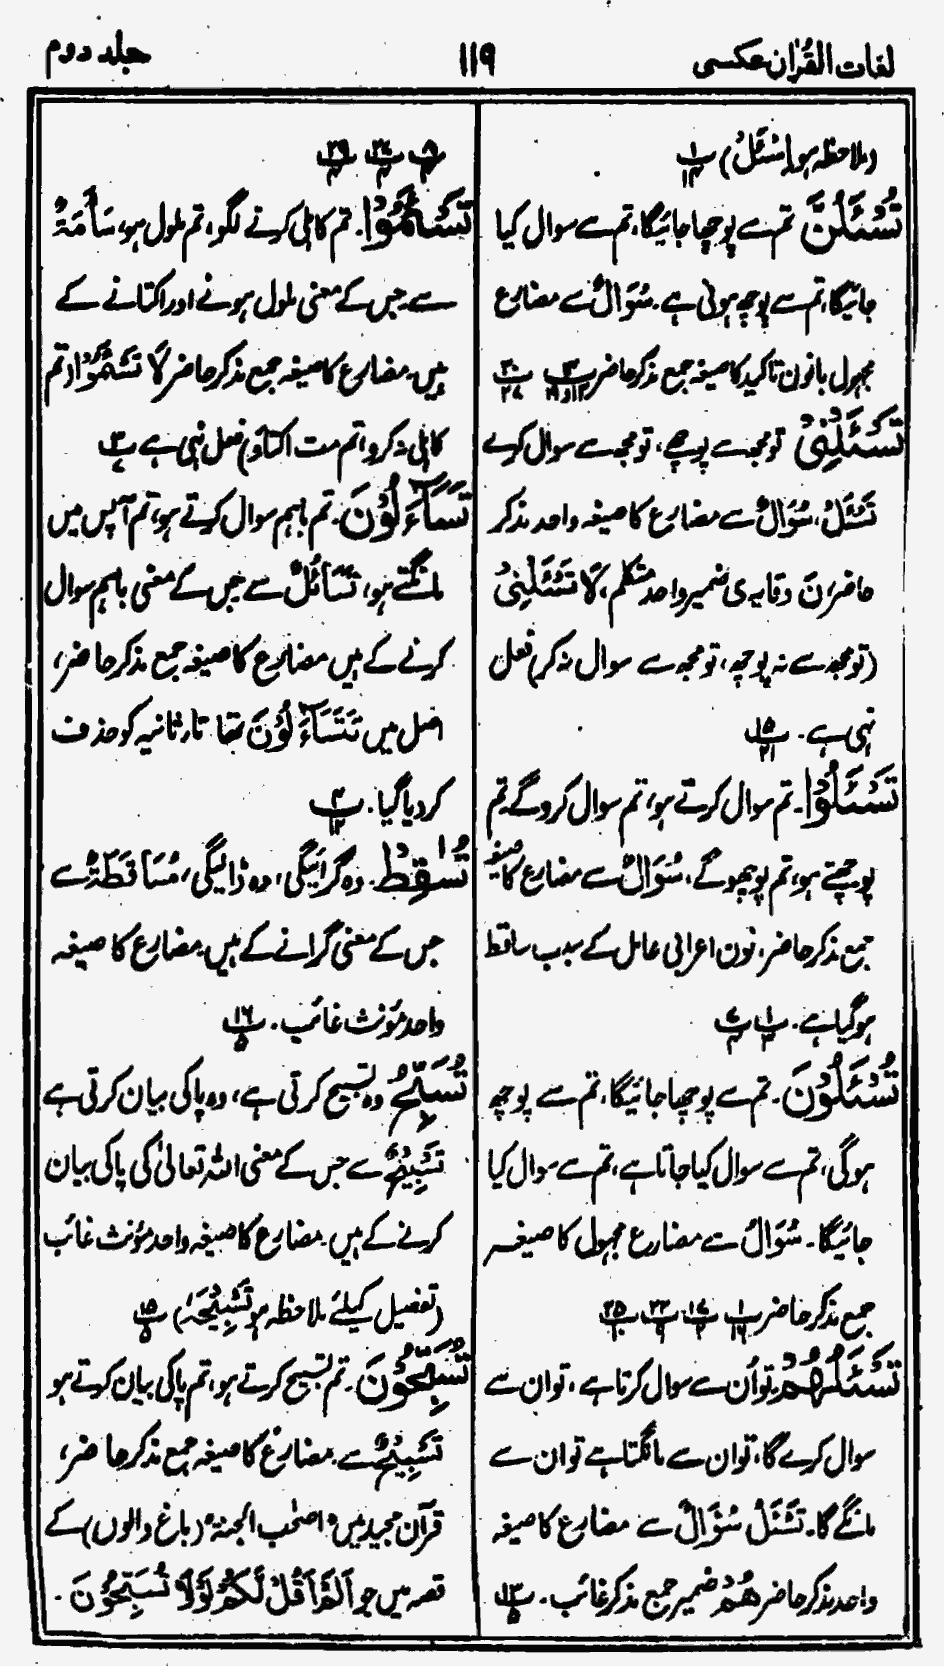 لغات القُرْاٰن عکسی
۱۱۹
جلد دوم
(ملاحظہ ہو اِسْئَلْ) پ ۱ / ۱۴
تُسْئَلُنَّ تم سے پوچھا جائیگا، تم سے سوال کیا
جائیگا، تم سے پوچھ ہونی ہے۔ سُوَالٌ سے مضارع
مجہول بانون تاکید کا صیغہ جمع مذکر حاضر پ پ ۳۰ / ۲۷
تَسْئَلْنِیْ تو مجھ سے پوچھے، تو مجھ سے سوال کرے
تَسْئَلُ، سُوَالٌ سے مضارع کا صیغہ واحد مذکر
حاضر، نَ وقایہ ی ضمیر واحد متکلم، لَا تَسْئَلْنِیْ
(تو مجھ سے نہ پوچھ، تو مجھ سے سوال نہ کر) فعل
نہی ہے۔ پ ۱۵ / ۲۱
تَسْئَلُوْا۔ تم سوال کرتے ہو، تم سوال کروگے تم
پوچھتے ہو، تم پوچھوگے، سُوَالٌ سے مضارع کا صیغہ
جمع مذکر حاضر، نون اعرابی عامل کے سبب ساقط
ہوگیا ہے۔ پ پ
تُسْئَلُوْنَ۔ تم سے پوچھا جائیگا، تم سے پوچھ
ہوگی، تم سے سوال کیا جاتا ہے، تم سے سوال کیا
جائیگا۔ سُوَالٌ سے مضارع مجہول کا صیغہ
جمع مذکر حاضر پ ۱ / ۱۶ پ ۱۷ / ۲ پ ۲۲ / ۹ پ ۲۵ / ۱۰
تَسْئَلُهُمْ تو اُن سے سوال کرتا ہے، تو ان سے
سوال کرے گا، تو ان سے مانگتا ہے تو ان سے
مانگے گا۔ تَسْئَلُ سُوَالٌ سے مضارع کا صیغہ
واحد مذکر حاضر هُمْ ضمیر جمع مذکر غائب۔ پ ۱۳ / ۵
پ پ پ
تَسْئَمُوْا۔ تم کاہلی کرنے لگو، تم ملول ہو، سَأْمَةٌ
سے جس کے معنی ملول ہونے اور اکتانے کے
ہیں۔ مضارع کا صیغہ جمع مذکر حاضر لَا تَسْئَمُوْا (تم
کاہلی نہ کرو، تم مت اکتاؤ) فعل نہی ہے پ
تَسَآءَلُوْنَ۔ تم باہم سوال کرتے ہو، تم آپس میں
مانگتے ہو، تَسَائُلٌ سے جس کے معنی باہم سوال
کرنے کے ہیں مضارع کا صیغہ جمع مذکر حاضر،
اصل میں تَتَسَآءَلُوْنَ تھا تار ثانیہ کو حذف
کر دیا گیا۔ پ ۴ / ۱۲
تُسٰقِطْ۔ وہ گرائیگی، وہ ڈالیگی، مُسَاقَطَةٌ سے
جس کے معنی گرانے کے ہیں۔ مضارع کا صیغہ
واحد مؤنث غائب۔ پ ۱۶ / ۵
تُسَبِّحُ وہ تسبیح کرتی ہے، وہ پاکی بیان کرتی ہے
تَسْبِیْحٌ سے جس کے معنی اللہ تعالیٰ کی پاکی بیان
کرنے کے ہیں۔ مضارع کا صیغہ واحد مؤنث غائب
(تفصیل کیلئے ملاحظہ ہو تَسْبِیْحَهٗ) پ ۱۵ / ۵
تُسَبِّحُوْنَ۔ تم تسبیح کرتے ہو، تم پاکی بیان کرتے ہو
تَسْبِیْحٌ سے۔ مضارع کا صیغہ جمع مذکر حاضر،
قرآن مجید میں اصحٰب الجنۃ (باغ والوں) کے
قصہ میں جو اَلَمْ اَقُلْ لَّكُمْ لَوْلَا تُسَبِّحُوْنَ۔